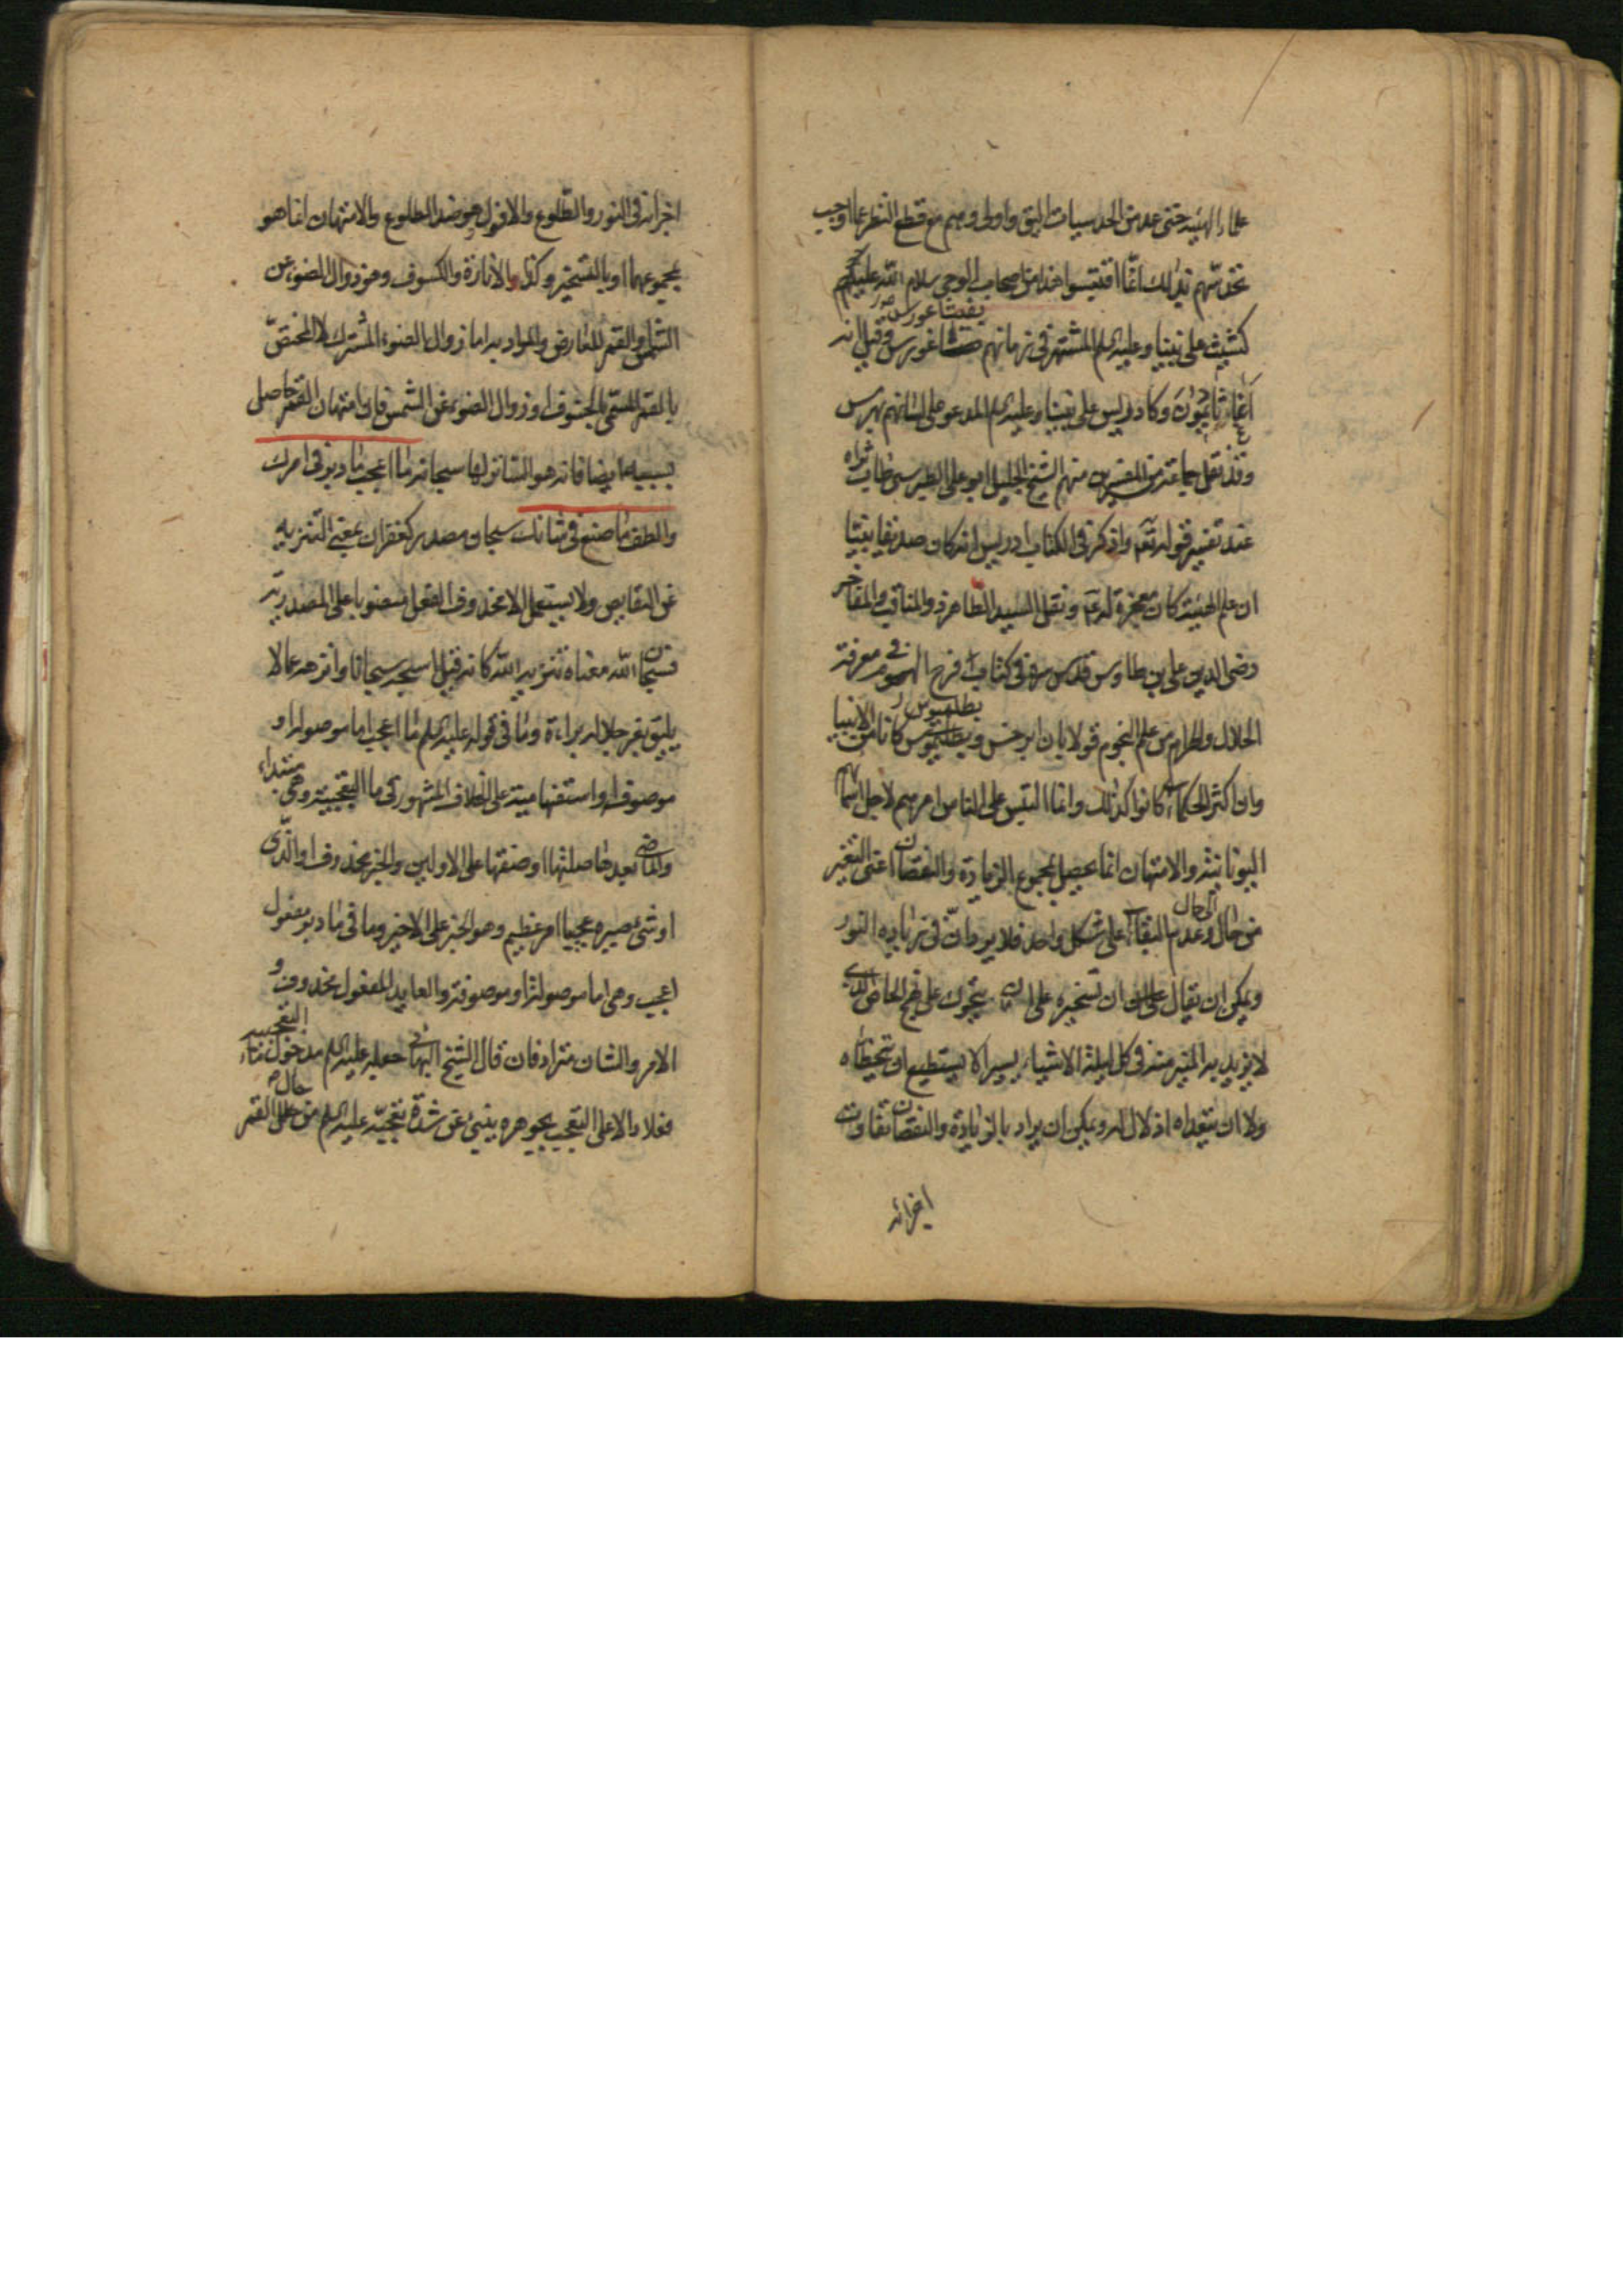 علماء الهيئة حتى عد من الحدسيات اليق واولى وهم مع قطع النظر عما اوجب
تحدسهم بذلك انما اقتبسوا هذا من اصحاب الوحى سلام الله عليهم
يفيثاغورس صور
كشيث على نبينا وعليه السلم المشتهر فى زمانهم وقيل انه
آغاثاثيمون وكادريس على نبينا وعليه السلم المدعو على لسانهم بهرمس
وقد نقل جماعة من المفسرين منهم الشيخ الجليل ابو على الطبرسى طاب ثراه
عند تفسير قوله تعم واذكر فى الكتاب ادريس انه كان صديقا نبيا
ان علم الهيئة كان معجزة له عم ونقل السيد الطاهر ذو المناقب والمفاخر
رضى الدين على بن طاوس قدس سره فى كتاب فرج المهموم فى معرفة
بطلميوس
الحلال والحرام من علم النجوم قولا بان ابرخس وبطلميوس كانا من الانبيا
وان اكثر الحكماء كانوا كذلك وانما التبس على الناس امرهم لاجل اسمائهم
اليونانية والامتهان انما يحصل بمجموع الزيادة والنقصان اعنى التغير
الى حال
من حال وعدم البقاء على شكل واحد فلا يرد ان فى زيادة النور
ويمكن ان يقال ان تسخيره على ان يتحرك على النهج الخاص الذى
لا يزيد به المنير منه فى كل ليلة الا شيئا يسيرا لا يستطيع ان يتخطاه
ولا ان يتعداه اذلال له ويمكن ان يراد بالزيادة والنقصان تفاوت
اجزائه
اجزائه فى النور والطلوع والافول هو ضد الطلوع والامتهان انما هو
بمجموعهما او بالتسخير وكذا والانارة والكسوف وهو زوال الضوء عن
الشمس والقمر للعارض والمراد به اما زوال الضوء المشترك لا المختص
بالقمر المسمى بالخسوف او زوال الضوء عن الشمس فان امتهان القمر حاصل
بسببها ايضا فانه هو الساتر لها سبحانه ما اعجب ما دبر فى امرك
والطف ما صنع فى شانك سبحان مصدر كغفران بمعنى التنزيه
عن النقايص ولا يستعمل الا محذوف الفعل منصوبا على المصدرية
فسبحان الله معناه تنزيه الله كانه قيل اسبحه سبحانا وانزهه عما لا
يليق بعز جلاله براءة وما فى قوله عليه السلم ما اعجب اما موصولة او
موصوفة او استفهامية على الخلاف المشهور فى ما التعجبية وهى مبتداء
والماضى بعدها صلتها او صفتها على الاولين والخبر محذوف اى الذى
او شئ صيره عجيبا امر عظيم وهو الخبر على الاخير وما فى ما دبر مفعول
اعجب وهى اما موصولة او موصوفة والعايد المفعول محذوف و
الامر والشان مترادفان قال الشيخ البهائى جعله عليه السلم مدخول ما التعجبية
فعلا دالا على التعجب بجوهره ينبئ عن شدة تعجبه عليه السلم من حال القمر